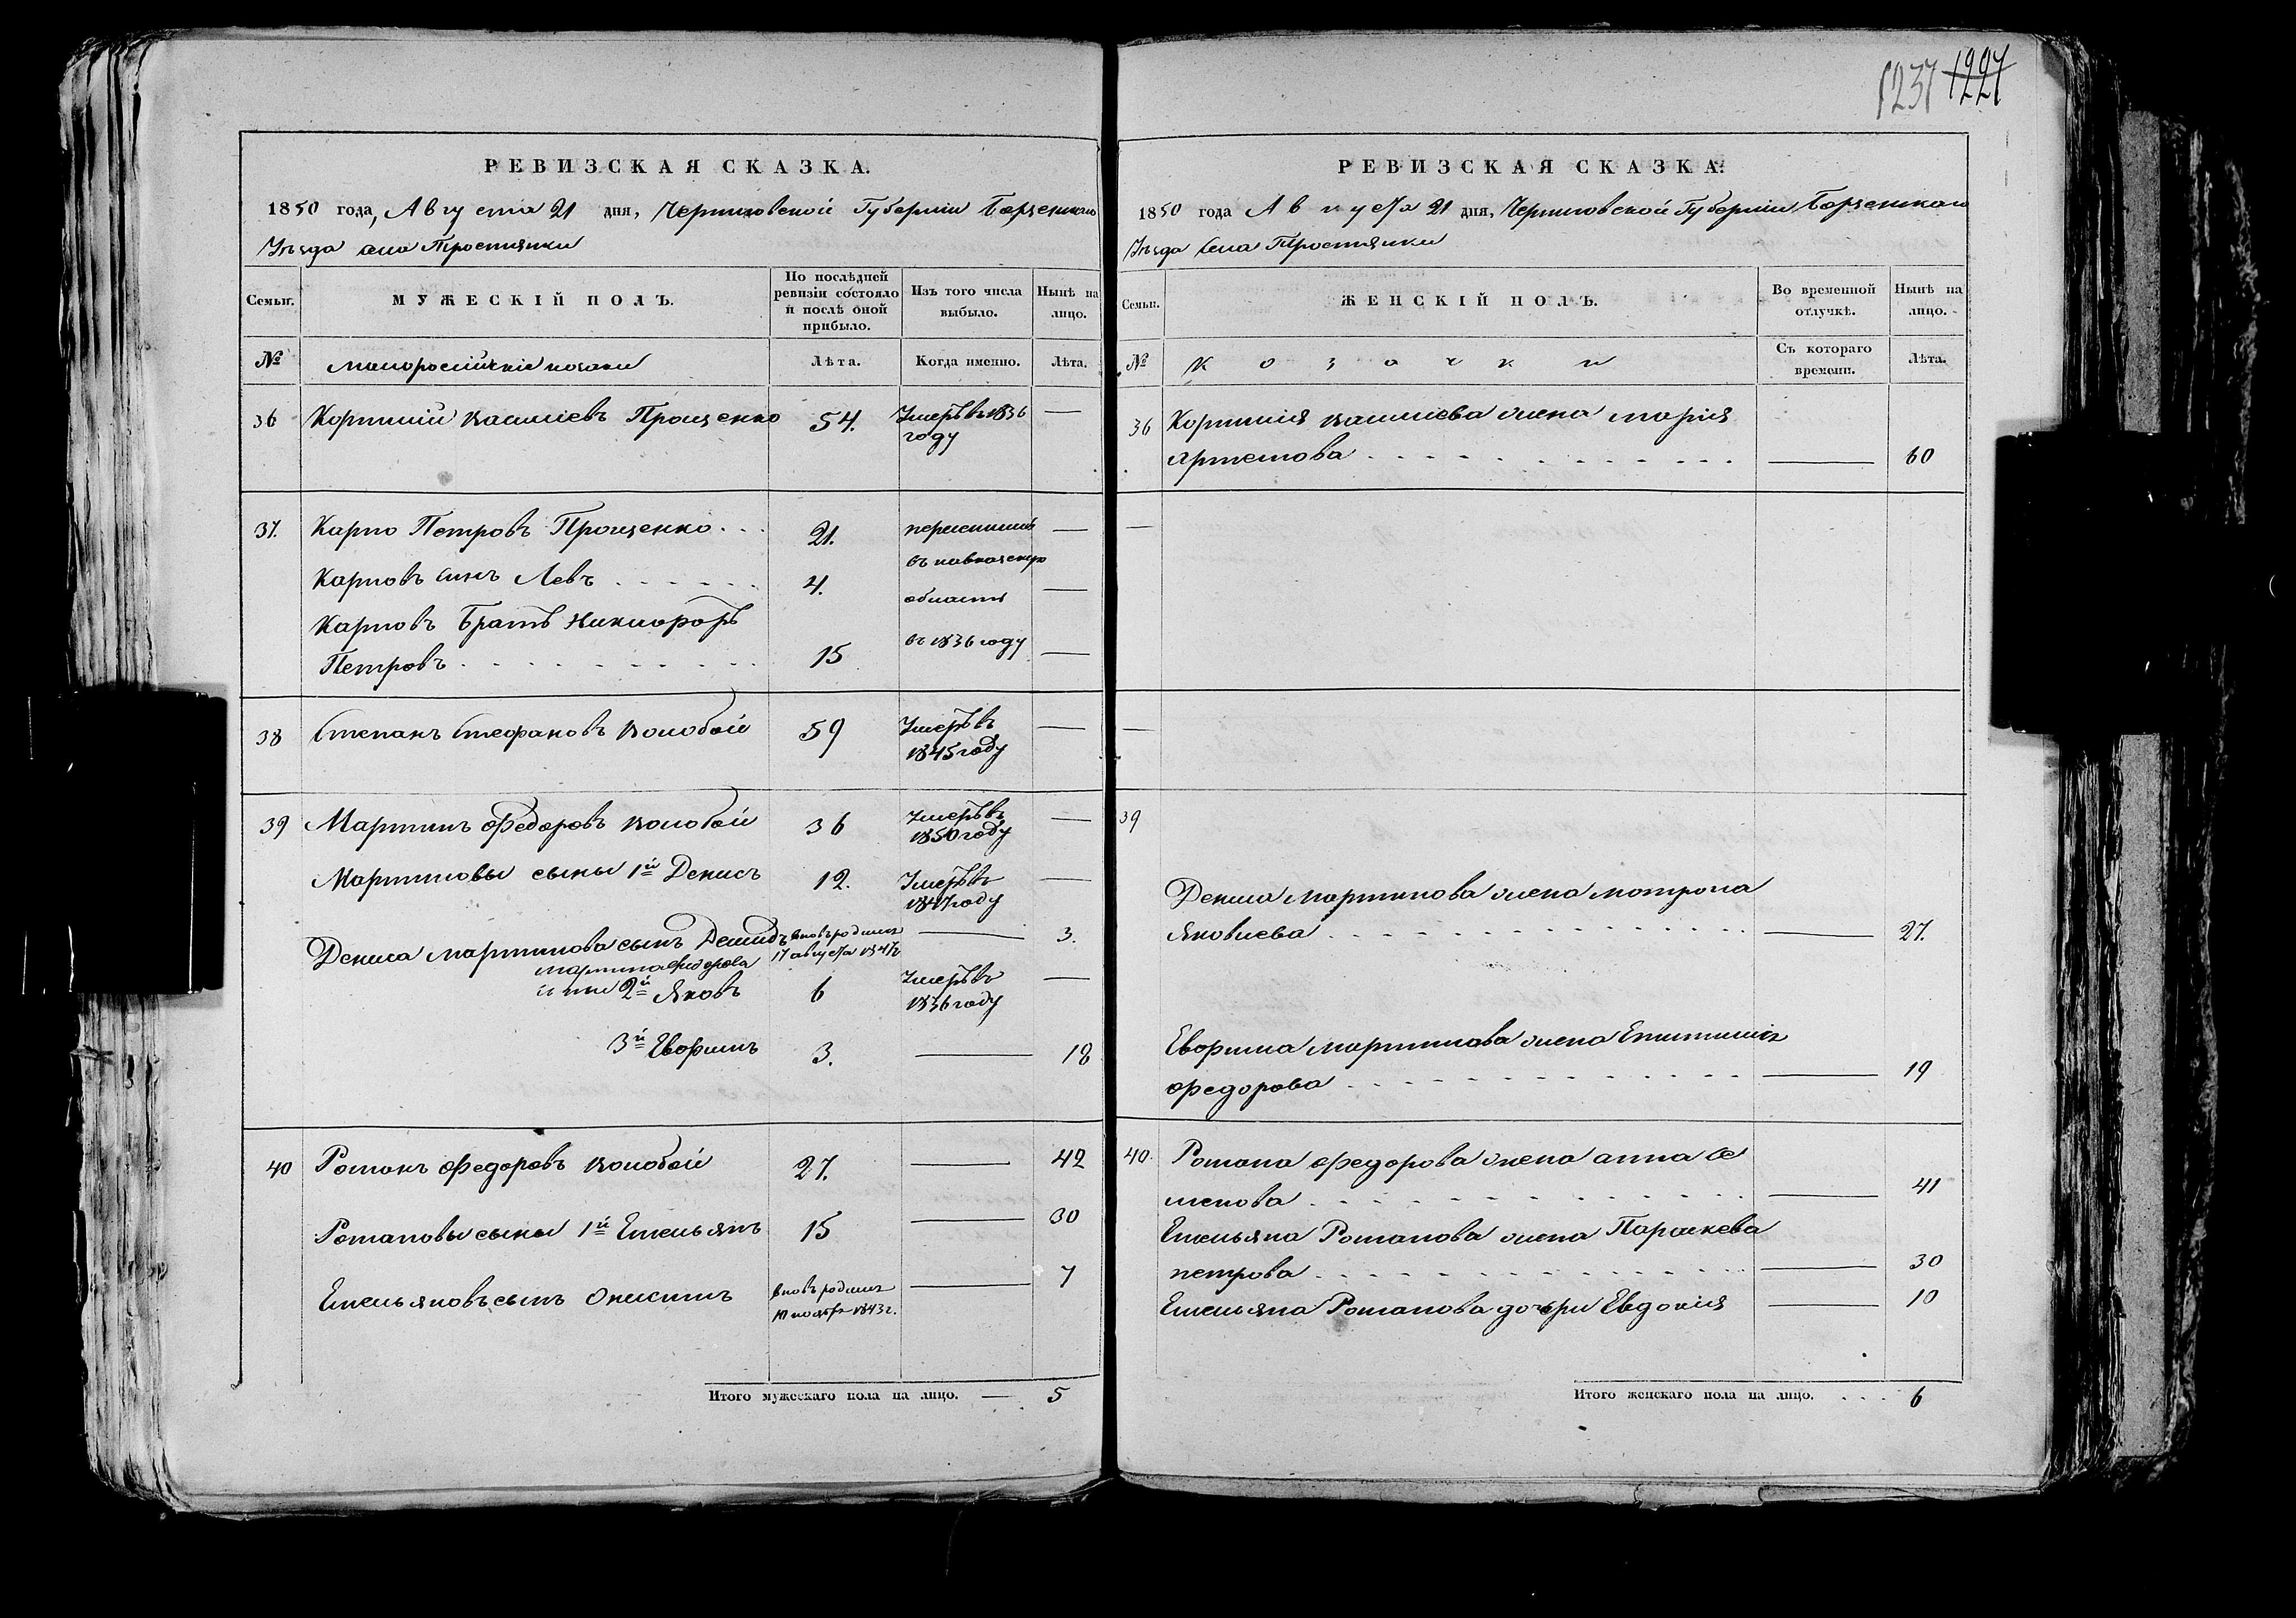 1237 1227
РЕВИЗСКАЯ СКАЗКА.
1850 года, Августа 21 дня, Черниговской Губернiи Борзенскаго
Уѣзда села Тростянки
Семьи.
МУЖЕСКIЙ ПОЛЪ.
По послѣдней ревизiи состояло и послѣ оной прибыло.
Изъ того числа выбыло.
Нынѣ на лицо.
№
малоросiйскiе козаки
Лѣта.
Когда именно.
Лѣта.
36 Корнилiй Василiевъ Прощенко 54. Умеръ въ 1836 —
году
37. Карпо Петровъ Прощенко 21. переселились —
въ кавказскую
Карповъ сынъ Левъ 4. —
область
Карповъ братъ Никифоръ
въ 1836 году
Петровъ 15 —
38 Степанъ Стефановъ Колобой 59 Умеръ въ —
1845 году
39 Мартинъ Федоровъ Колобой 36 Умеръ въ —
1850 году
Мартиновы сыны 1й Денисъ 12. Умеръ въ —
1847 году
Дениса Мартинова сынъ Демидъ вновь родился — 3.
17 августа 1847г
Мартина Федорова
сыны 2й Яковъ 6 Умеръ въ —
1836 году
3й Евфимъ 3. — 18
40 Романъ Федоровъ Колобой 27. — 42
Романовы сыны 1й Емельянъ 15 — 30
Емельяновъ сынъ Онисимъ вновь родился — 7
ноября 1843г.
Итого мужескаго пола на лицо. — 5
РЕВИЗСКАЯ СКАЗКА.
1850 года Августа 21 дня, Черниговской Губернiи Борзенскаго
Уѣзда Села Тростянки
Семьи.
ЖЕНСКIЙ ПОЛЪ.
Во временной отлучкѣ.
Нынѣ на лицо.
№
Козачки
Съ котораго времени.
Лѣта.
36 Корнилiя Василiева жена Марiя
Артемова — 60
—
—
39
Дениса Мартинова жена Мотрона
Яковлева — 27.
Евфима Мартинова жена
Федорова — 19
40. Романа Федорова жена Анна Се
менова — 41
Емельяна Романова жена Параскева
Петрова — 30
Емельяна Романова дочери Евдокiя — 10
Итого женскаго пола на лицо. 6